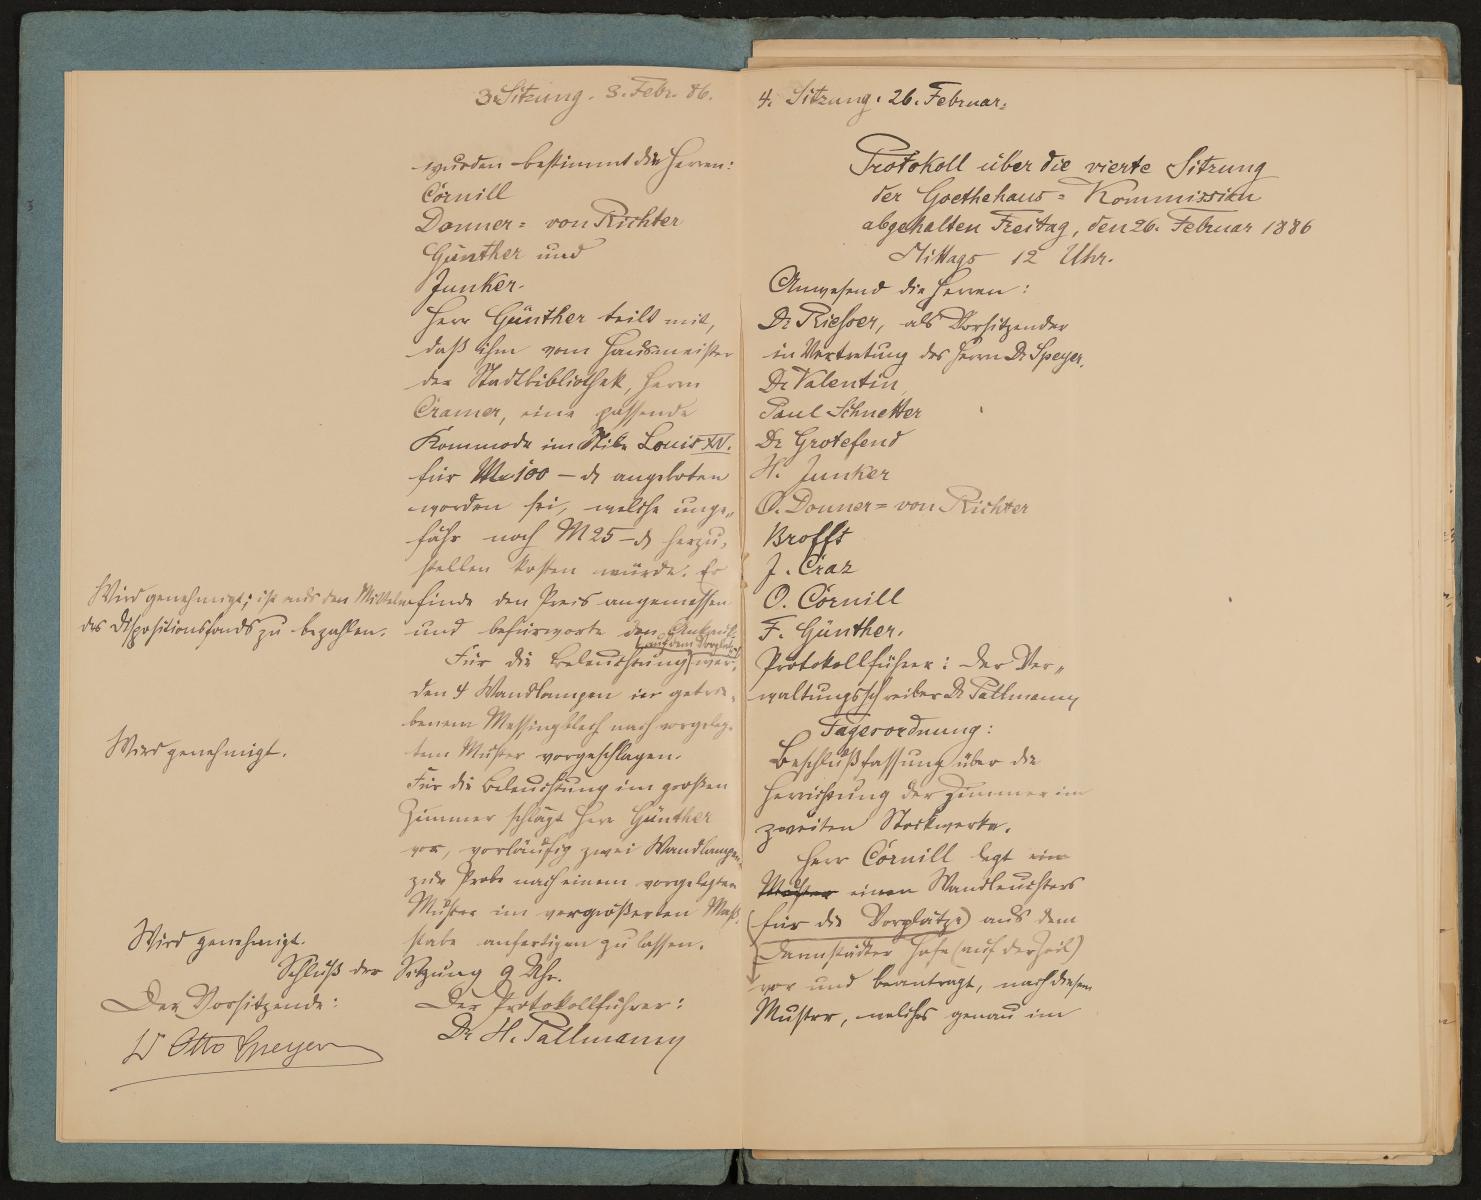 3. Sitzung. 8. Febr. 86.
wurden bestimmt die Herren:
Cornill
Donner= von Richter
Günther und
Junker.
Herr Günther teilt mit,
daß ihm vom Hausmeister
der Stadtbibliothek, Herrn
Cramer, eine passende
Kommode im Stile Louis XV.
für M 100 – angeboten
worden sei, welche unge„
fähr noch M 25 – herzu„
stellen kosten würde. Er
Wird genehmigt; ist aus den Mitteln
des Dispositionsfonds zu bezahlen.
finde den Preis angemessen
und befürworte den Ankauf.
auf dem Vorplatz
Für die Beleuchtung wer„
den 4 Wandlampen in getrie„
benem Messingblech nach vorgeleg„
Wird genehmigt.
tem Muster vorgeschlagen.
Für die Beleuchtung im großen
Zimmer schlägt Herr Günther
vor, vorläufig zwei Wandlampen
zur Probe nach einem vorgelegten
Muster im vergrößerten Maß„
Wird genehmigt.
stabe anfertigen zu lassen.
Schluß der Sitzung 9 Uhr.
Der Vorsitzende:
Dr Otto Speyer
Der Protokollführer:
Dr H. Pallmann
4. Sitzung. 26. Februar.
Protokoll über die vierte Sitzung
der Goethehaus= Kommission
abgehalten Freitag, den 26. Februar 1886
Mittags 12 Uhr.
Anwesend die Herren:
Dr Riesser, als Vorsitzender
in Vertretung des Herrn Dr Speyer,
Dr Valentin,
Paul Schnetter
Dr Grotefend
H. Junker
O. Donner= von Richter
Brofft
J. Craz
O. Cornill
F. Günther.
Protokollführer: der Ver„
waltungsschreiber Dr Pallmann
Tagesordnung:
Beschlußfassung über die
Herrichtung der Zimmer im
zweiten Stockwerke.
Herr Cornill legt ein
Muster einen Wandleuchters
(für die Vorplätze) aus dem
Darmstädter Hofe (auf der Zeil)
vor und beantragt, nach diesem
Muster, welches genau im